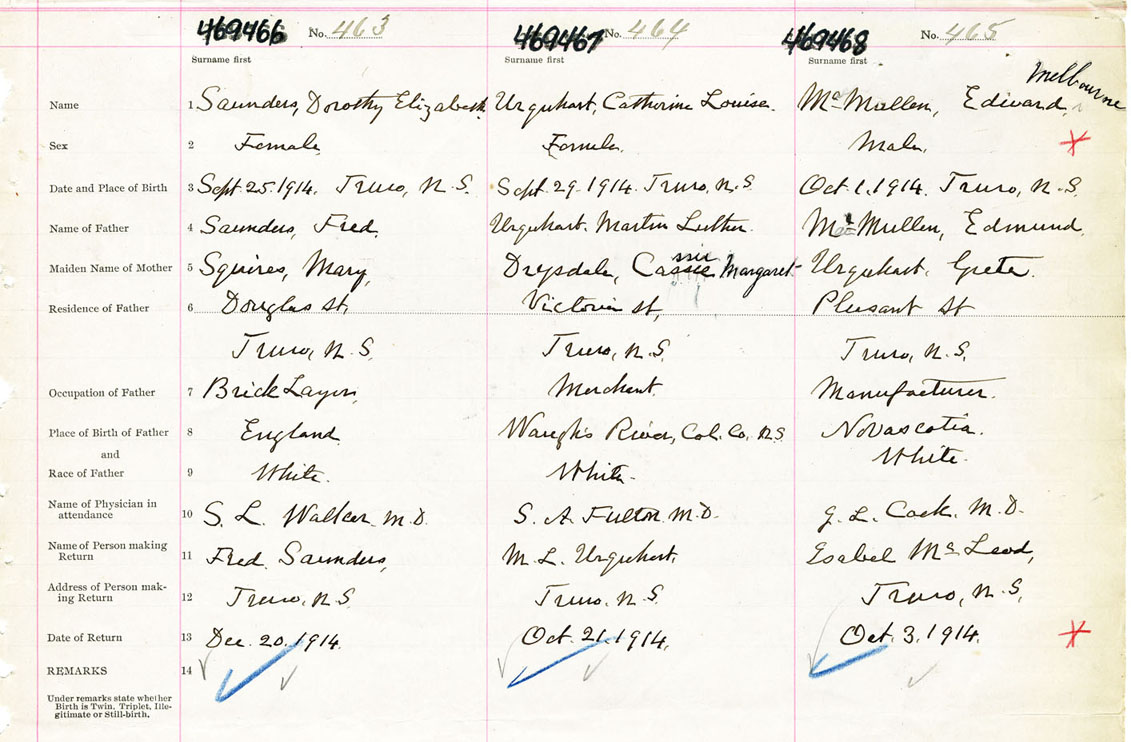 469466 No. 463 469467 No. 464 469468 No. 465
Surname first Surname first Surname first
Melbourne
Name 1 Saunders, Dorothy Elizabeth Urquhart, Catherine Louise. McMullen, Edward,
Sex 2 Female Female. Male. X
Date and Place of Birth 3 Sept. 25. 1914. Truro, N.S. Sept. 29. 1914. Truro, N.S. Oct. 1. 1914. Truro, N.S.
Name of Father 4 Saunders, Fred. Urquhart. Martin Luther. McMullen, Edmund.
ssie
Maiden Name of Mother 5 Squires, Mary, Drysdale, Cassie Margaret Urquhart, Greta.
Residence of Father 6 Douglas St, Victoria St, Pleasant St
Truro, N.S. Truro, N.S. Truro, N.S.
Occupation of Father 7 Brick Layer, Merchant. Manufacturer.
Place of Birth of Father 8 England Waugh's River, Col. Co, N.S. Novascotia.
and
Race of Father 9 White. White. White.
Name of Physician in
attendance 10 S. L. Walker. M.D. S. A. Fulton. M.D. G. L. Cock. M.D.
Name of Person making
Return 11 Fred. Saunders, M. L. Urquhart. Esabel McLeod,
Address of Person mak-
ing Return 12 Truro, N.S. Truro, N.S. Truro, N.S.
Date of Return 13 Dec. 20. 1914. Oct. 21. 1914. Oct. 3. 1914. X
REMARKS 14
Under remarks state whether
Birth is Twin, Triplet, Ille-
gitimate or Still-birth.